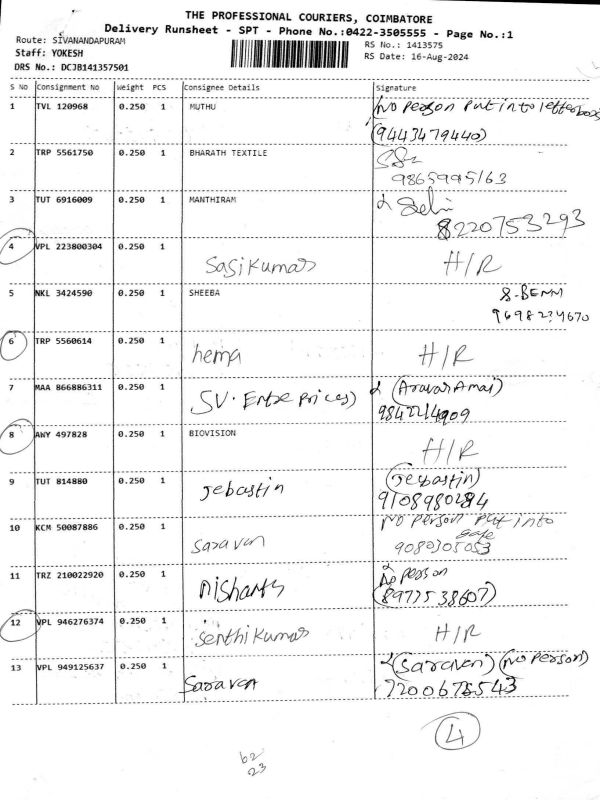 THE PROFESSIONAL COURIERS, COIMBATORE
Delivery Runsheet - SPT - Phone No.:0422-3505555 - Page No.:1
Route: SIVANANDAPURAM
RS No.: 1413575
Staff: YOKESH
RS Date: 16-Aug-2024
DRS No.: DCJB141357501
S No Consignment No Weight PCS Consignee Details Signature
1 TVL 120968 0.250 1 MUTHU No person put into letter box
(9443479440)
2 TRP 5561750 0.250 1 BHARATH TEXTILE
9865995163
3 TUT 6916009 0.250 1 MANTHIRAM Selvi
8220753293
4 VPL 223800304 0.250 1 Sasikumar H/R
5 NKL 3424590 0.250 1 SHEEBA
9698234670
6 TRP 5560614 0.250 1 hema H/R
7 MAA 866886311 0.250 1 SV. Enterprices)
8 ANY 497828 0.250 1 BIOVISION H/R
9 TUT 814880 0.250 1 Jebastin (Jebastin)
9108980284
10 KCM 50087886 0.250 1 Saravan No person put into
gate
9080305053
11 TRZ 210022920 0.250 1 Nishanth No person
(8977538607)
12 VPL 946276374 0.250 1 Senthikumar H/R
13 VPL 949125637 0.250 1 Saravan (Saraven) (No person)
7200675543
4
62
23